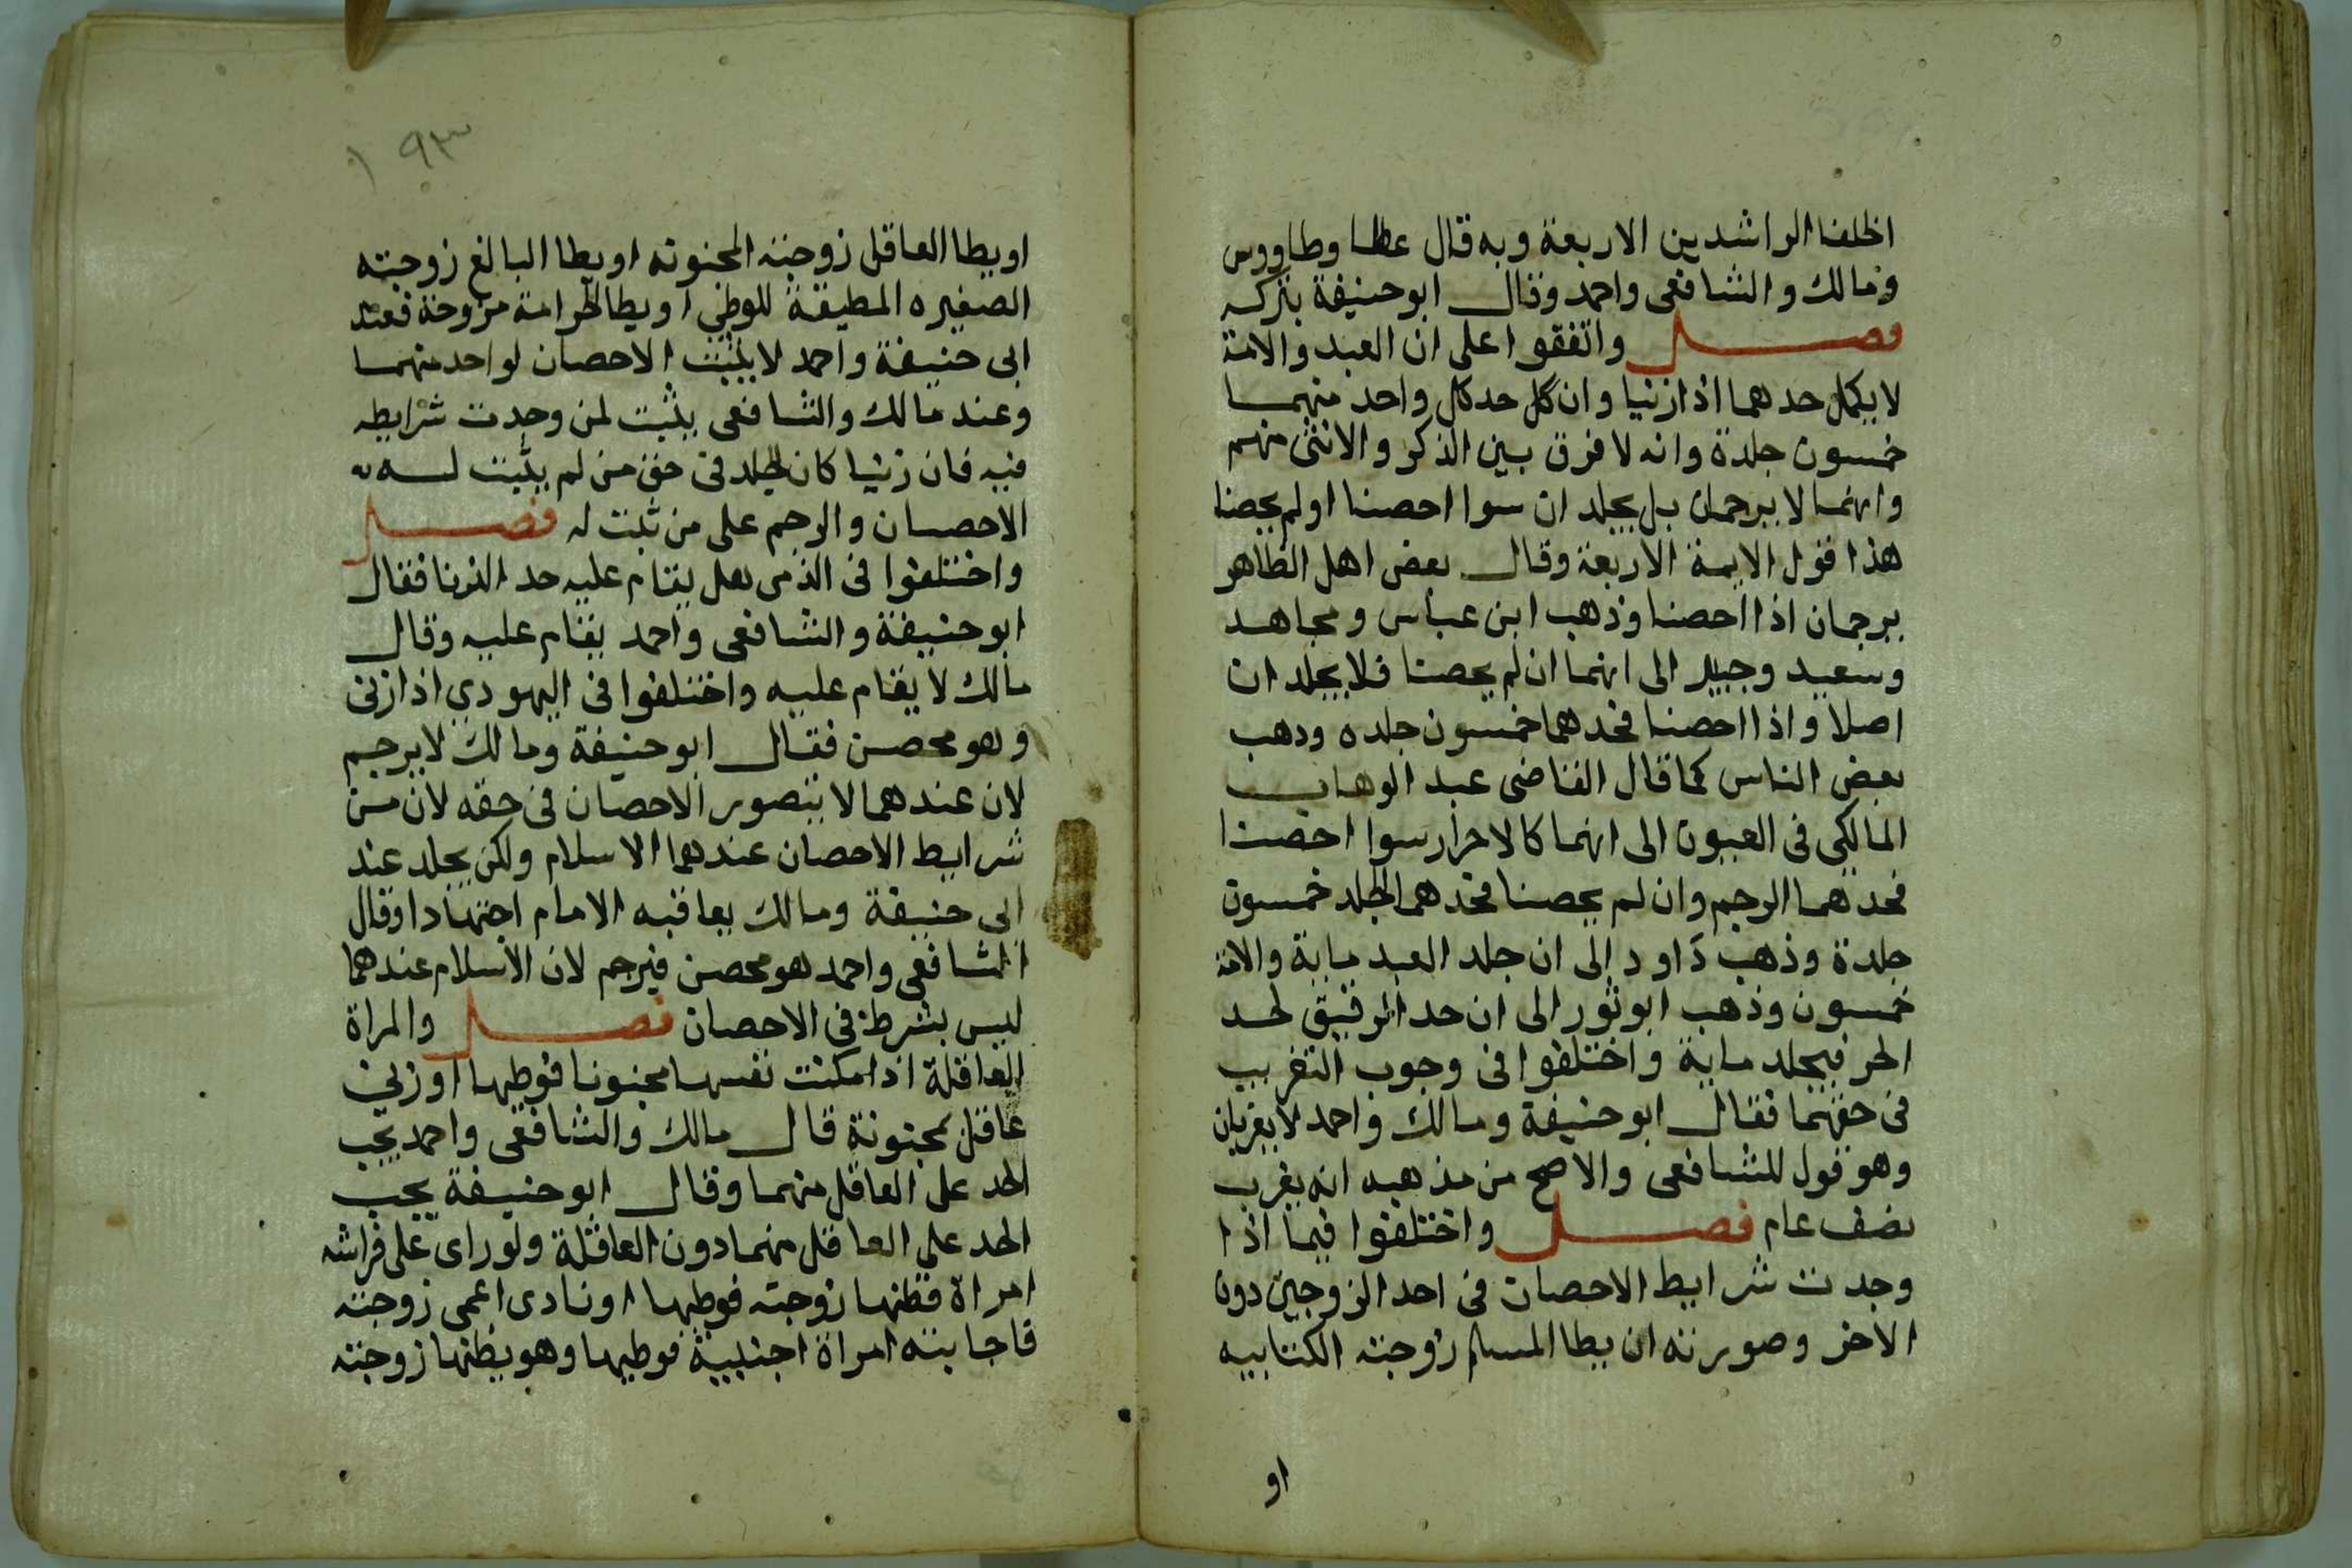 الخلفا الراشدين الاربعة وبه قال عطا وطاووس
ومالك والشافعى واحمد وقال ابوحنيفة بتركه
فصل واتفقوا على ان العبد والامة
لا يكمل حدهما اذا زنيا وان كل حد كل واحد منهما
خمسون جلدة وانه لا فرق بين الذكر والانثى منهم
وانهما لا يرجمان بل يجلد ان سوا احصنا اولم يحصنا
هذا قول الايمة الاربعة وقال بعض اهل الظاهر
يرجمان اذا احصنا وذهب ابن عباس ومجاهد
وسعيد وجبير الى انهما ان لم يحصنا فلا يجلد ان
اصلا واذا احصنا فحدهما خمسون جلده وذهب
بعض الناس كما قال القاضى عبد الوهاب
المالكى فى العيون الى انهما كالاحرار سوا احصنا
فحدهما الرجم وان لم يحصنا فحدهما الجلد خمسون
جلدة وذهب داود الى ان جلد العبد ماية والامة
خمسون وذهب ابوثور الى ان حد الرقيق لحد
الحر فيجلد ماية واختلفوا فى وجوب التغريب
فى حقهما فقال ابوحنيفة ومالك واحمد لا يغربان
وهو قول للشافعى والاصح من مذهبه انه يغرب
نصف عام فصل واختلفوا فيما اذا
وجدت شرايط الاحصان فى احد الزوجين دون
الاخر وصورته ان يطا المسلم زوجته الكتابيه
او
١٩٣
او يطا العاقل زوجته المجنونه او يطا البالغ زوجته
الصغيره المطيقة للوطئ او يطا الحر امة مزوجة فعند
ابى حنيفة واحمد لا يثبت الاحصان لواحد منهما
وعند مالك والشافعى يثبت لمن وجدت شرايطه
فيه فان زنيا كان الجلد فى حق من لم يثبت له
الاحصان والرجم على من ثبت له فصل
واختلفوا فى الذمى هل يقام عليه حد الزنا فقال
ابوحنيفة والشافعى واحمد يقام عليه وقال
مالك لا يقام عليه واختلفوا فى اليهودي اذا زنى
وهو محصن فقال ابوحنيفة ومالك لا يرجم
لان عندهما لا يتصور الاحصان فى حقه لان من
شرايط الاحصان عندهما الاسلام ولكن يجلد عند
ابى حنيفة ومالك يعاقبه الامام اجتهادا وقال
الشافعى واحمد هو محصن فيرجم لان الاسلام عندهما
ليس بشرط فى الاحصان فصل والمراة
العاقلة اذا مكنت نفسها مجنونا فوطيها او زنى
عاقل بمجنونة قال مالك والشافعى واحمد يجب
الحد على العاقل منهما وقال ابوحنيفة يجب
الحد على العاقل منهما دون العاقلة ولو راى على فراشه
امراة فظنها زوجته فوطيها او نادى اعمى زوجته
فاجابته امراة اجنبية فوطيها وهو يظنها زوجته